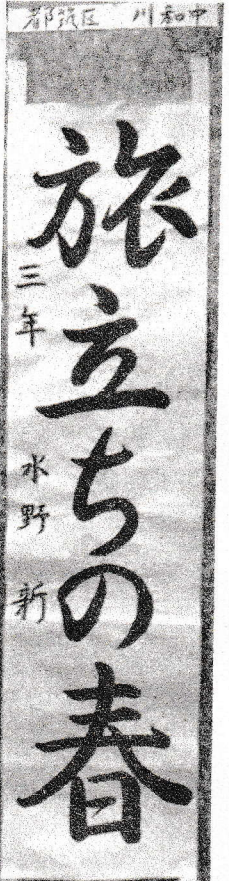 都筑区 川和中
旅立ちの春
三年 水野 新